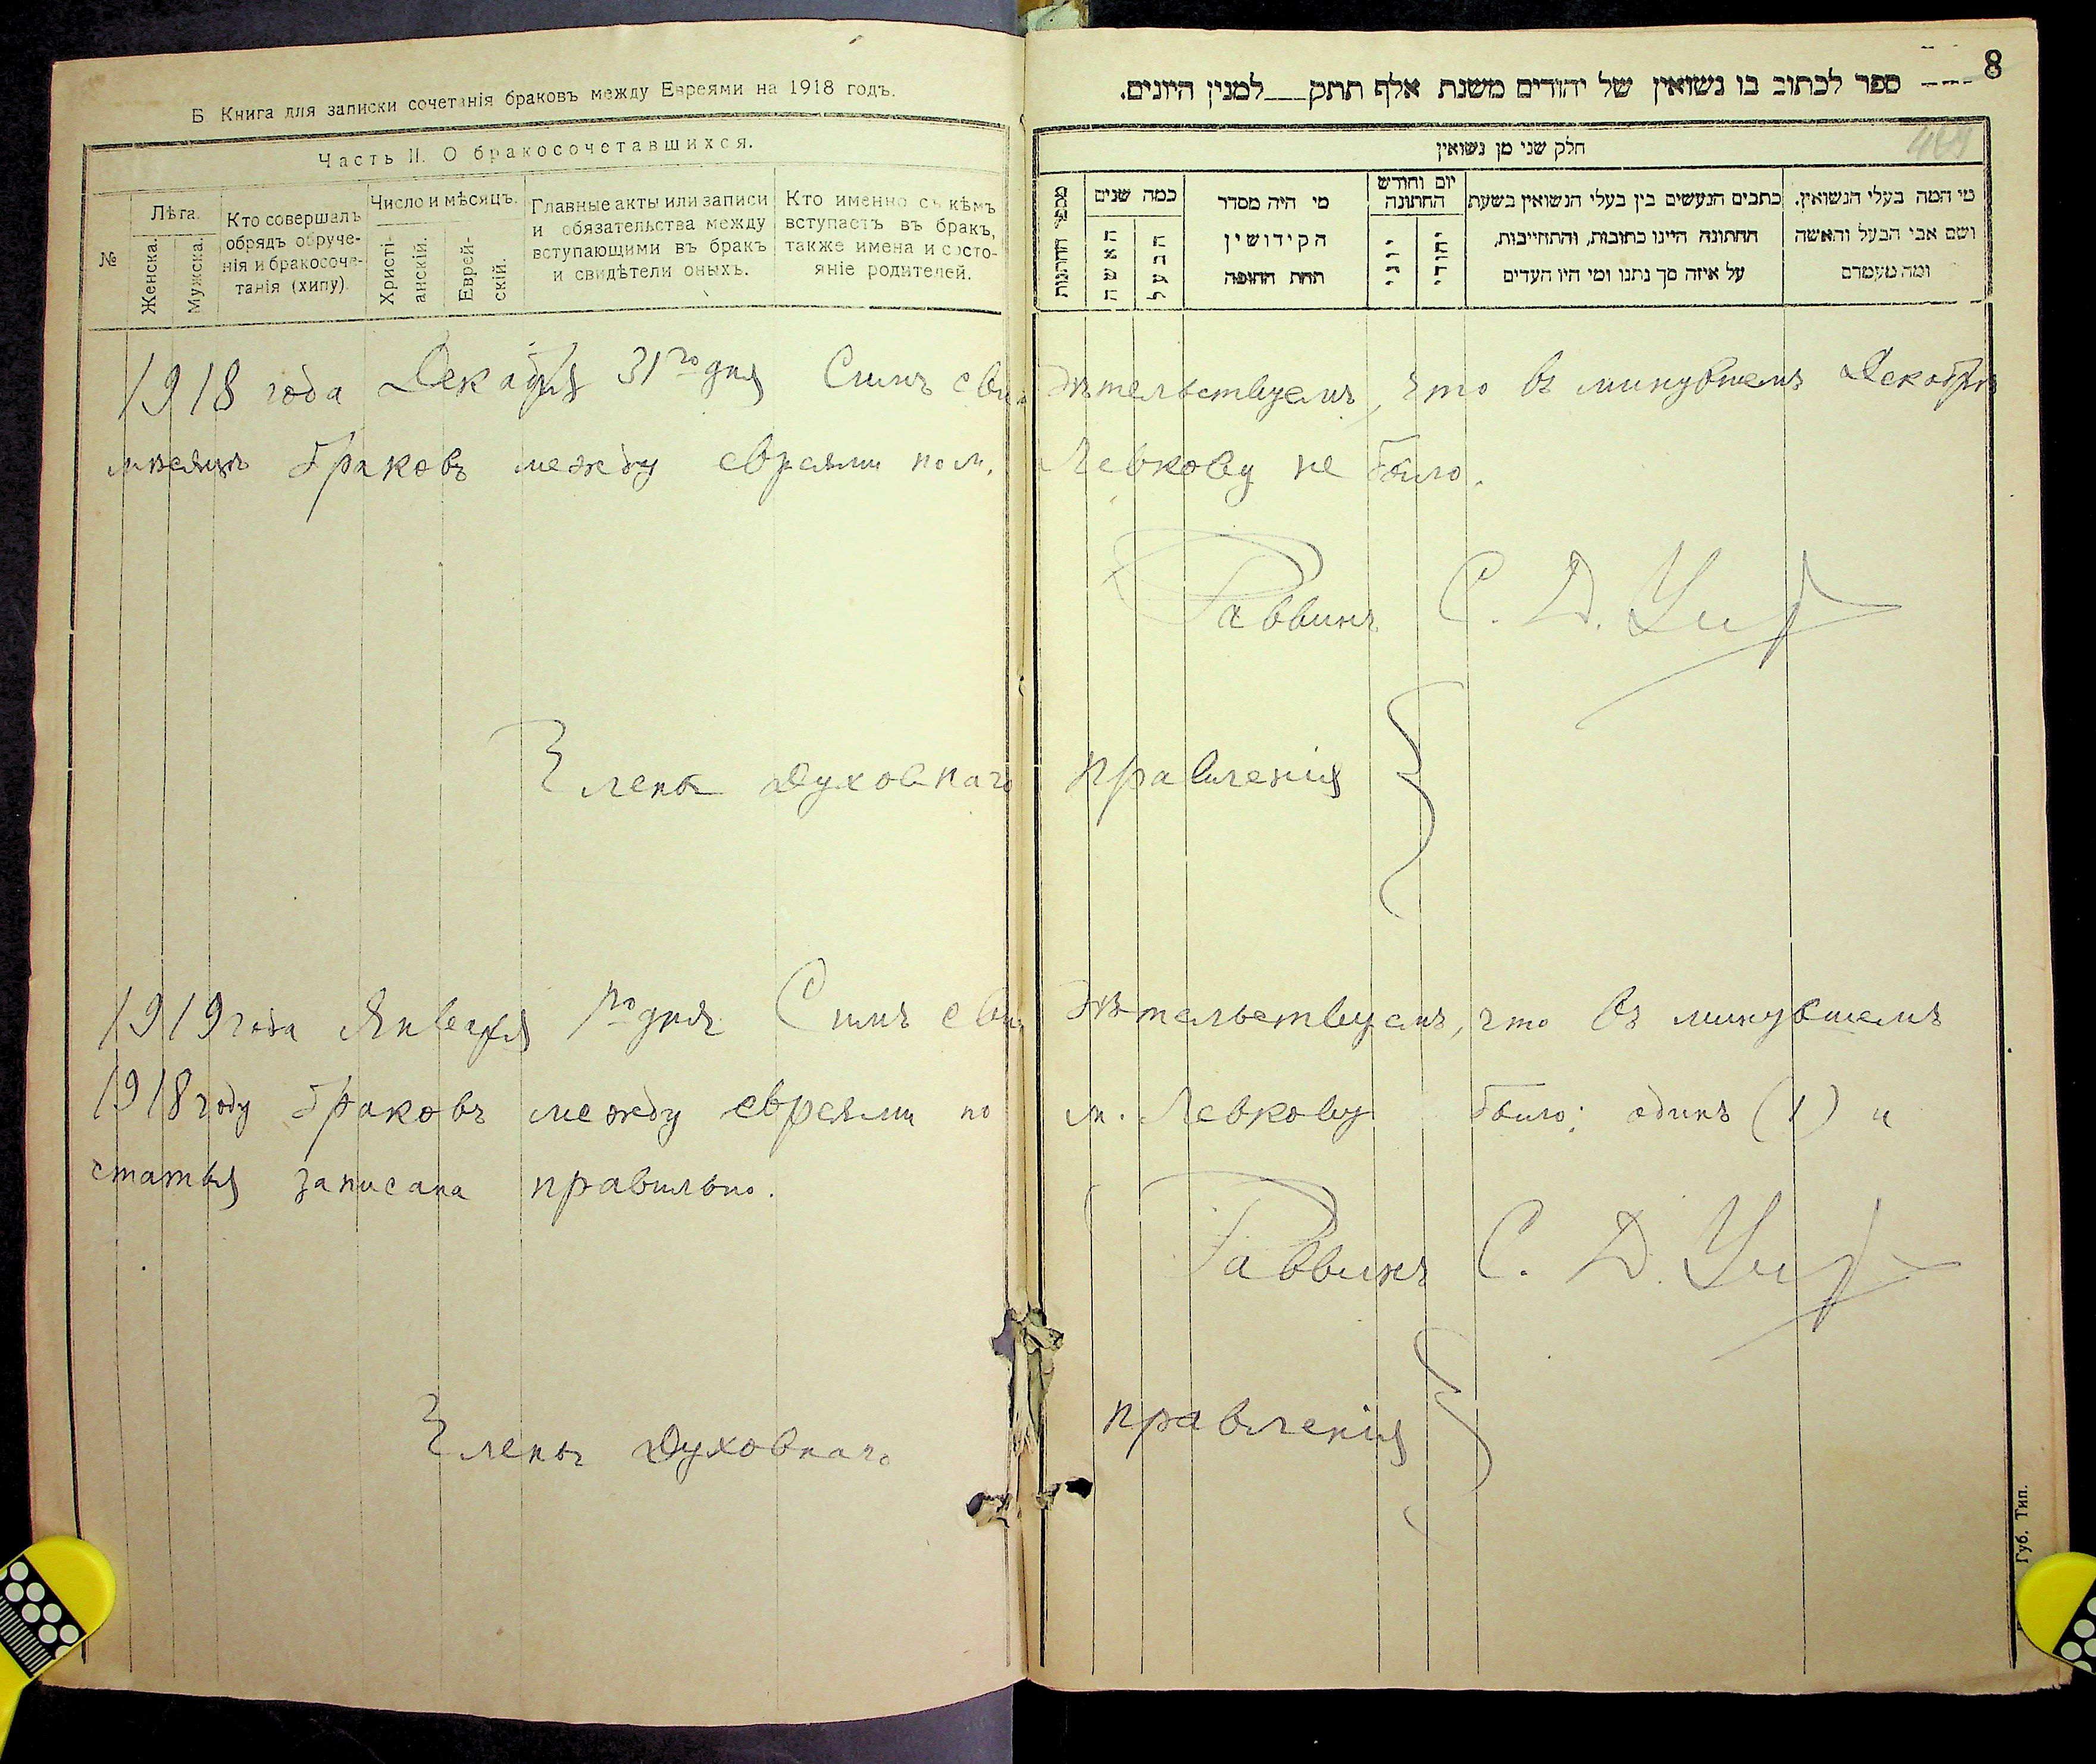 Б Книга для записки сочетанія браковъ между Евреями на 1918 годъ.
Часть II. О бракосочетавшихся.
№
Лѣта.
Женска.
Мужска.
Кто совершалъ
обрядъ обруче-
нія и бракосоче-
танія (хипу)
Число и мѣсяцъ.
Христі-
анскій.
Еврей-
скій.
Главные акты или записи
и обязательства между
вступающими въ бракъ
и свидѣтели оныхъ.
Кто именно съ кѣмъ
вступаетъ въ бракъ,
также имена и состо-
яніе родителей.
8
ספר לכתוב בו נשואין של יהודים משנת אלף תתק__למנין היונים.
חלק שני מן נשואין
מספר החתונות
כמה שנים
האשה
הבעל
מי היה מסדר
הקידושין
תחת החופה
יום וחודש
החתונה
יוני
יהודי
כתבים הנעשים בין בעלי הנשואין בשעת
החתונה היינו כתובות, והתחייבות,
על איזה סך נתנו ומי היו העדים
מי המה בעלי הנשואין.
ושם אבי הבעל והאשה
ומה מעמדם
1918 года Декабря 31го дня Симъ свидѣтельствуемъ, что въ минувшемъ Декабрѣ
мѣсяцѣ браковъ между евреями по м. Левкову не было.
Раввинъ С. Д.
Члены Духовнаго правленія
1919 года Января 1го дня Симъ свидѣтельствуемъ, что въ минувшемъ
1918 году браковъ между евреями по м. Левкову было: одинъ (1) и
статья записана правильно.
Раввинъ С. Д.
Члены Духовнаго правленія
Губ. Тип.